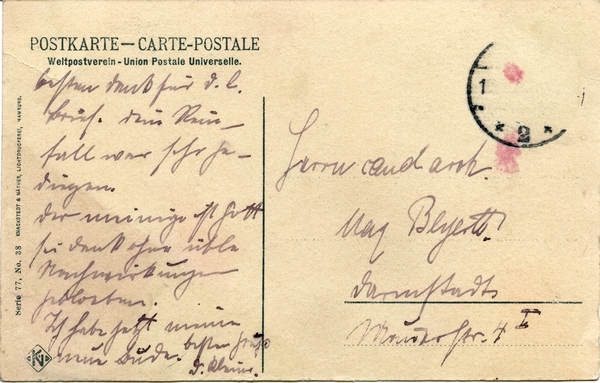 POSTKARTE — CARTE-POSTALE
Weltpostverein - Union Postale Universelle.
besten Dank für d. l.
Brief. Dein Rein-
fall war sehr ge-
diegen.
Der meinige ist Gott
sei Dank ohne üble
Nachwirkungen
geblieben.
Ich habe jetzt meine
neue Bude. besten Gruß
Serie 77, No. 38 KNACKSTEDT & NÄTHER, LICHTDRUCKEREI, HAMBURG.
1
* 2 *
Herrn cand arch.
Max
Darmstadt
4 I